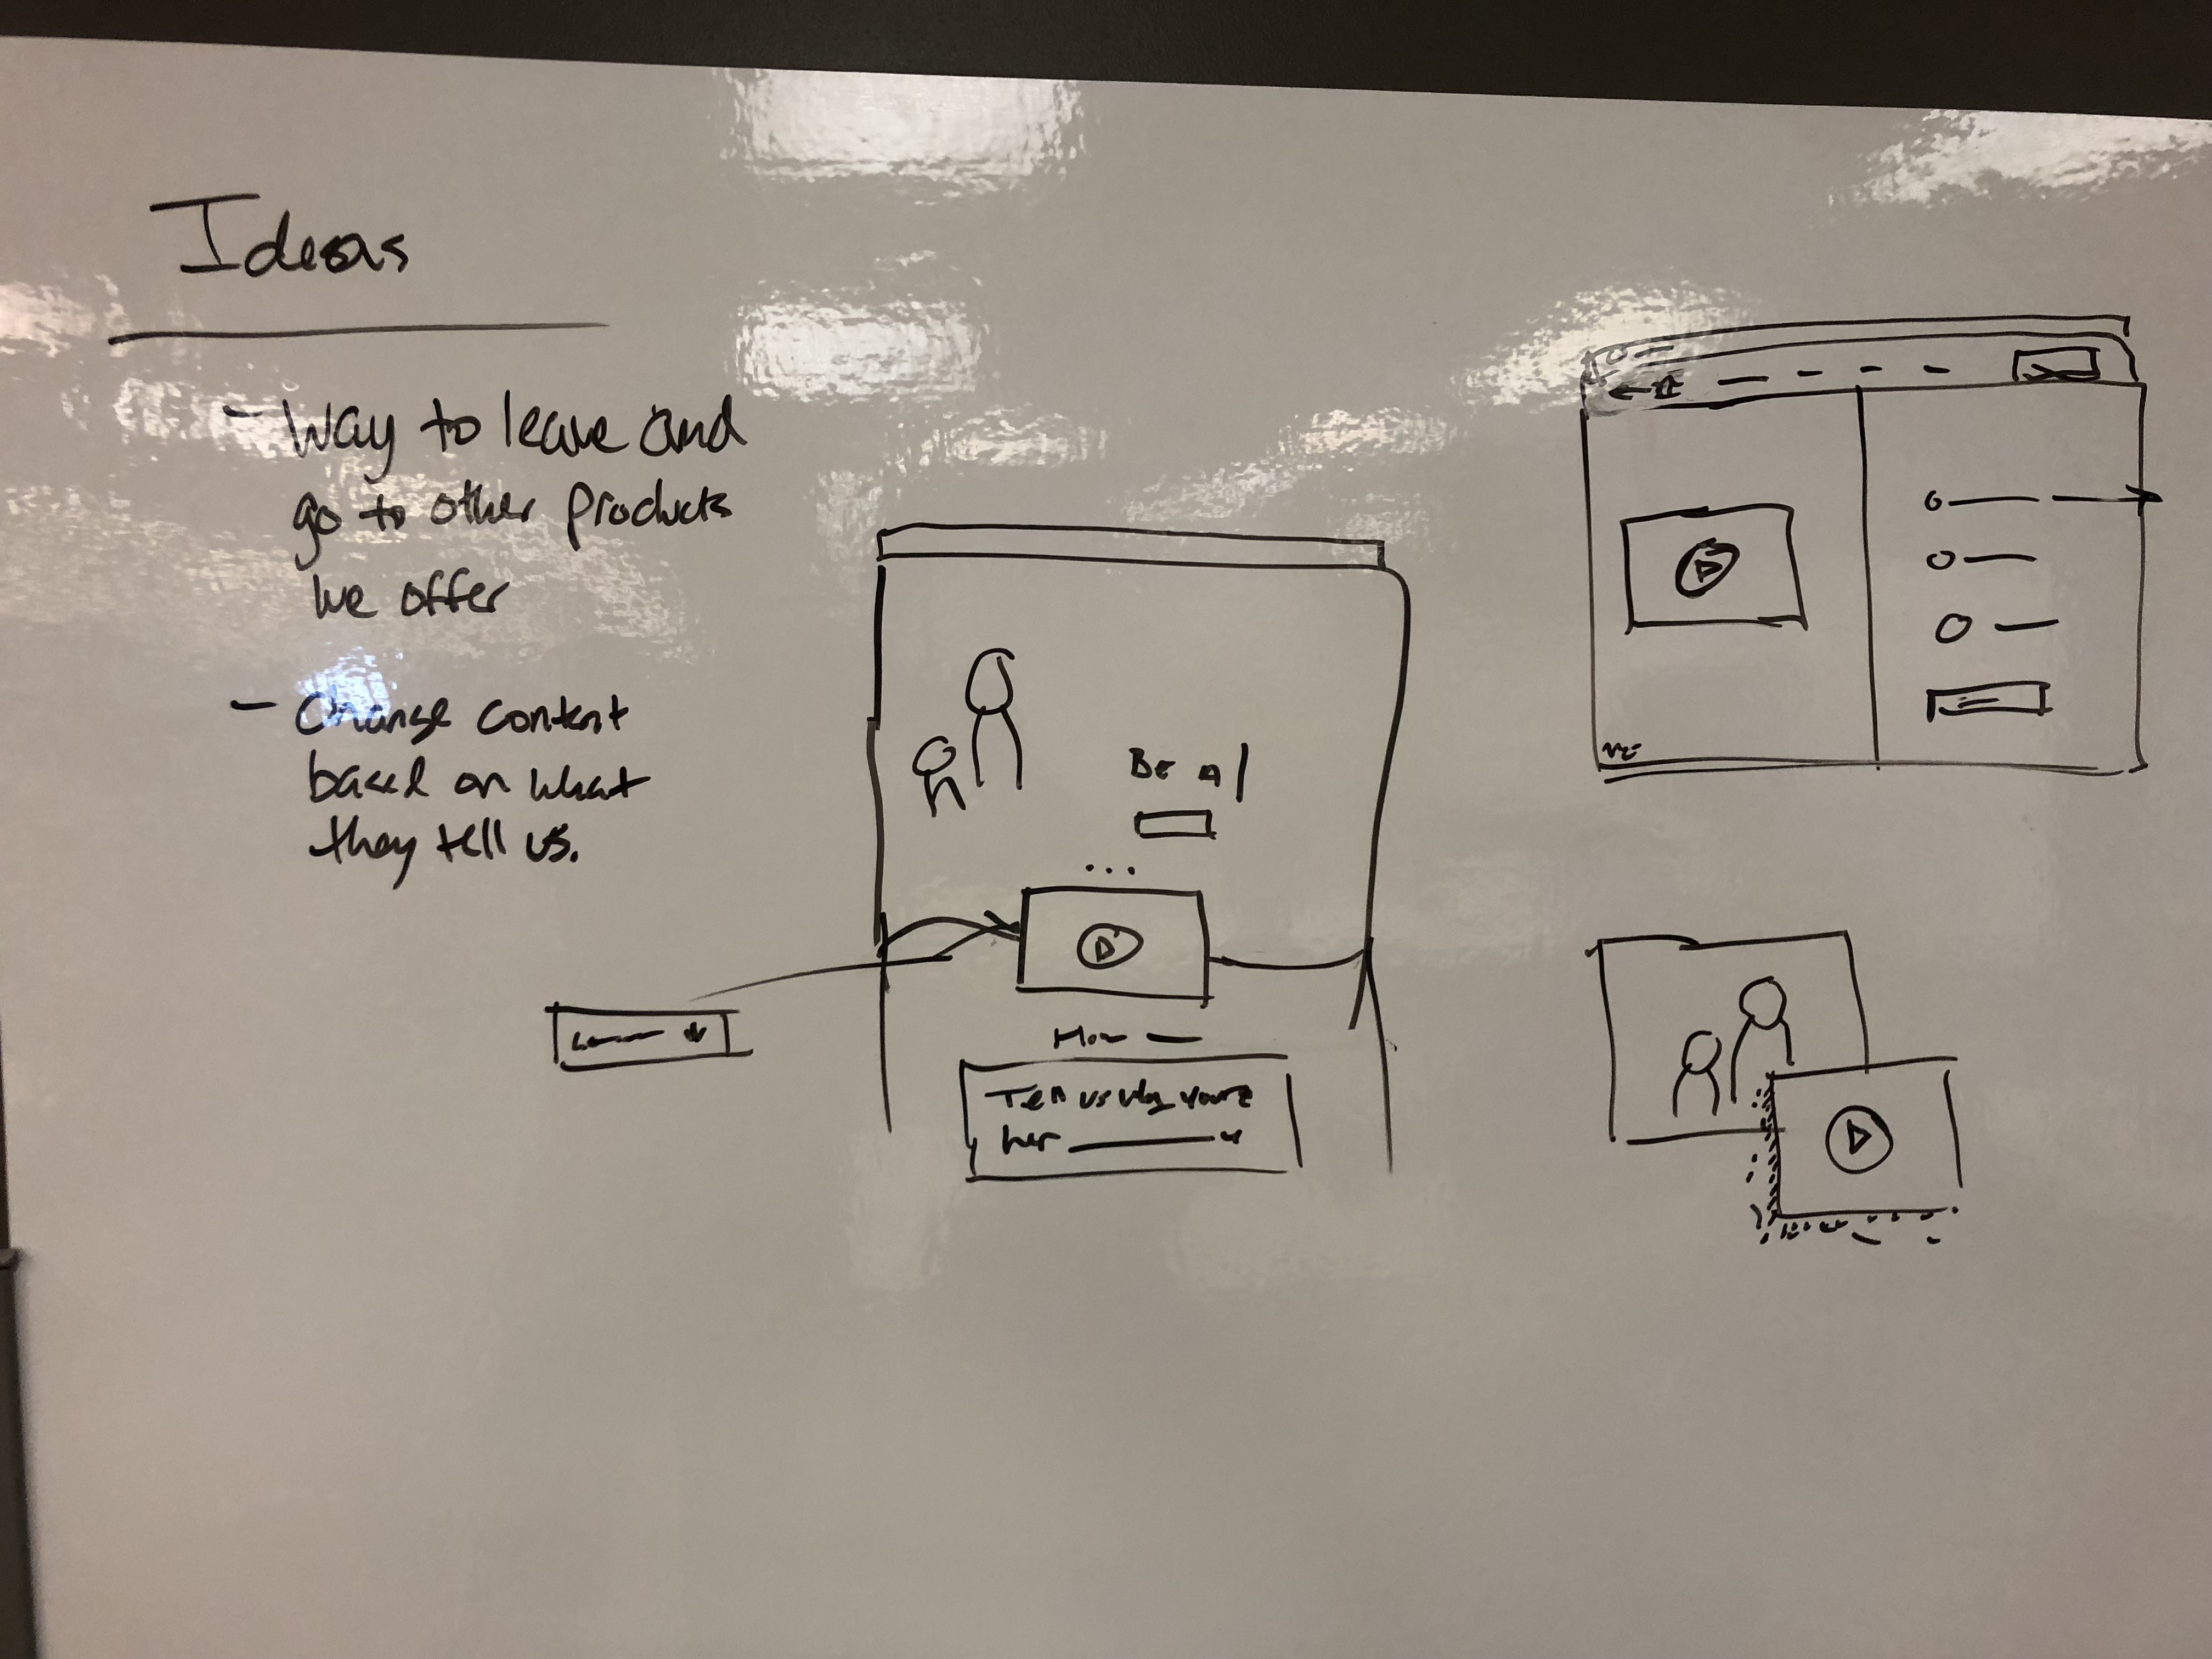 Ideas
- Way to leave and
go to other products
we offer
- Change content
based on what
they tell us.
Be A
...
How
Tell us why your
her